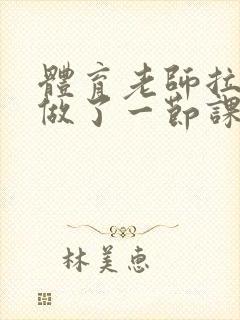 體育老師拉
做了一節課
林美惠